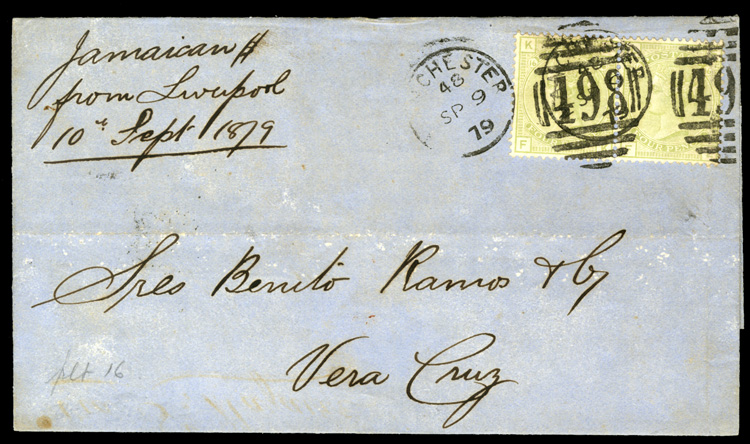 Jamaican $
from Liverpool
10th Sept 1879
CHESTER
48
SP 9
79
K
F
498
49
Sres Benito Ramos & Cy
Vera Cruz
plt 16